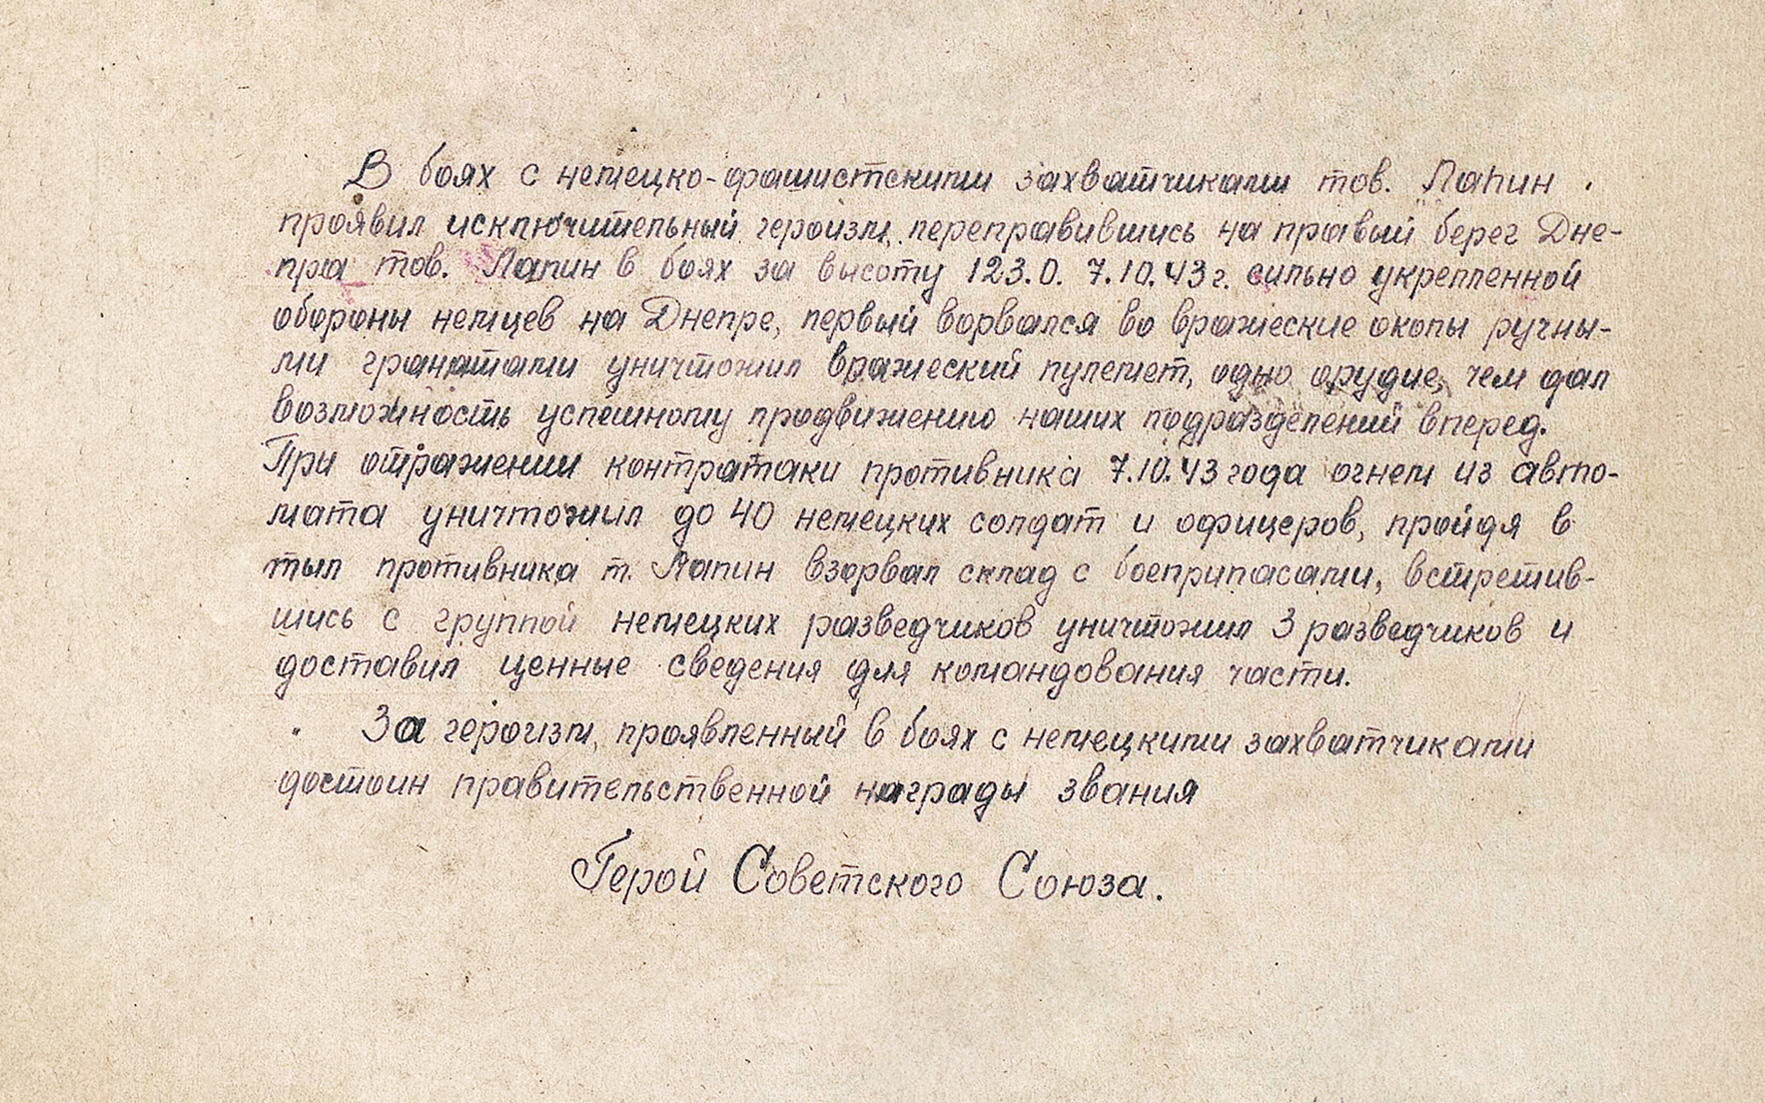 В боях с немецко-фашистскими захватчиками тов. Лапин
проявил исключительный героизм, переправившись на правый берег Дне-
пра тов. Лапин в боях за высоту 123.0. 7.10.43 г. сильно укрепленной
обороны немцев на Днепре, первый ворвался во вражеские окопы ручны-
ми гранатами уничтожил вражеский пулемет, одно орудие, чем дал
возможность успешному продвижению наших подразделений вперед.
При отражении контратаки противника 7.10.43 года огнем из авто-
мата уничтожил до 40 немецких солдат и офицеров, пройдя в
тыл противника т. Лапин взорвал склад с боеприпасами, встретив-
шись с группой немецких разведчиков уничтожил 3 разведчиков и
доставил ценные сведения для командования части.
За героизм, проявленный в боях с немецкими захватчиками
достоин правительственной награды звания
Герой Советского Союза.